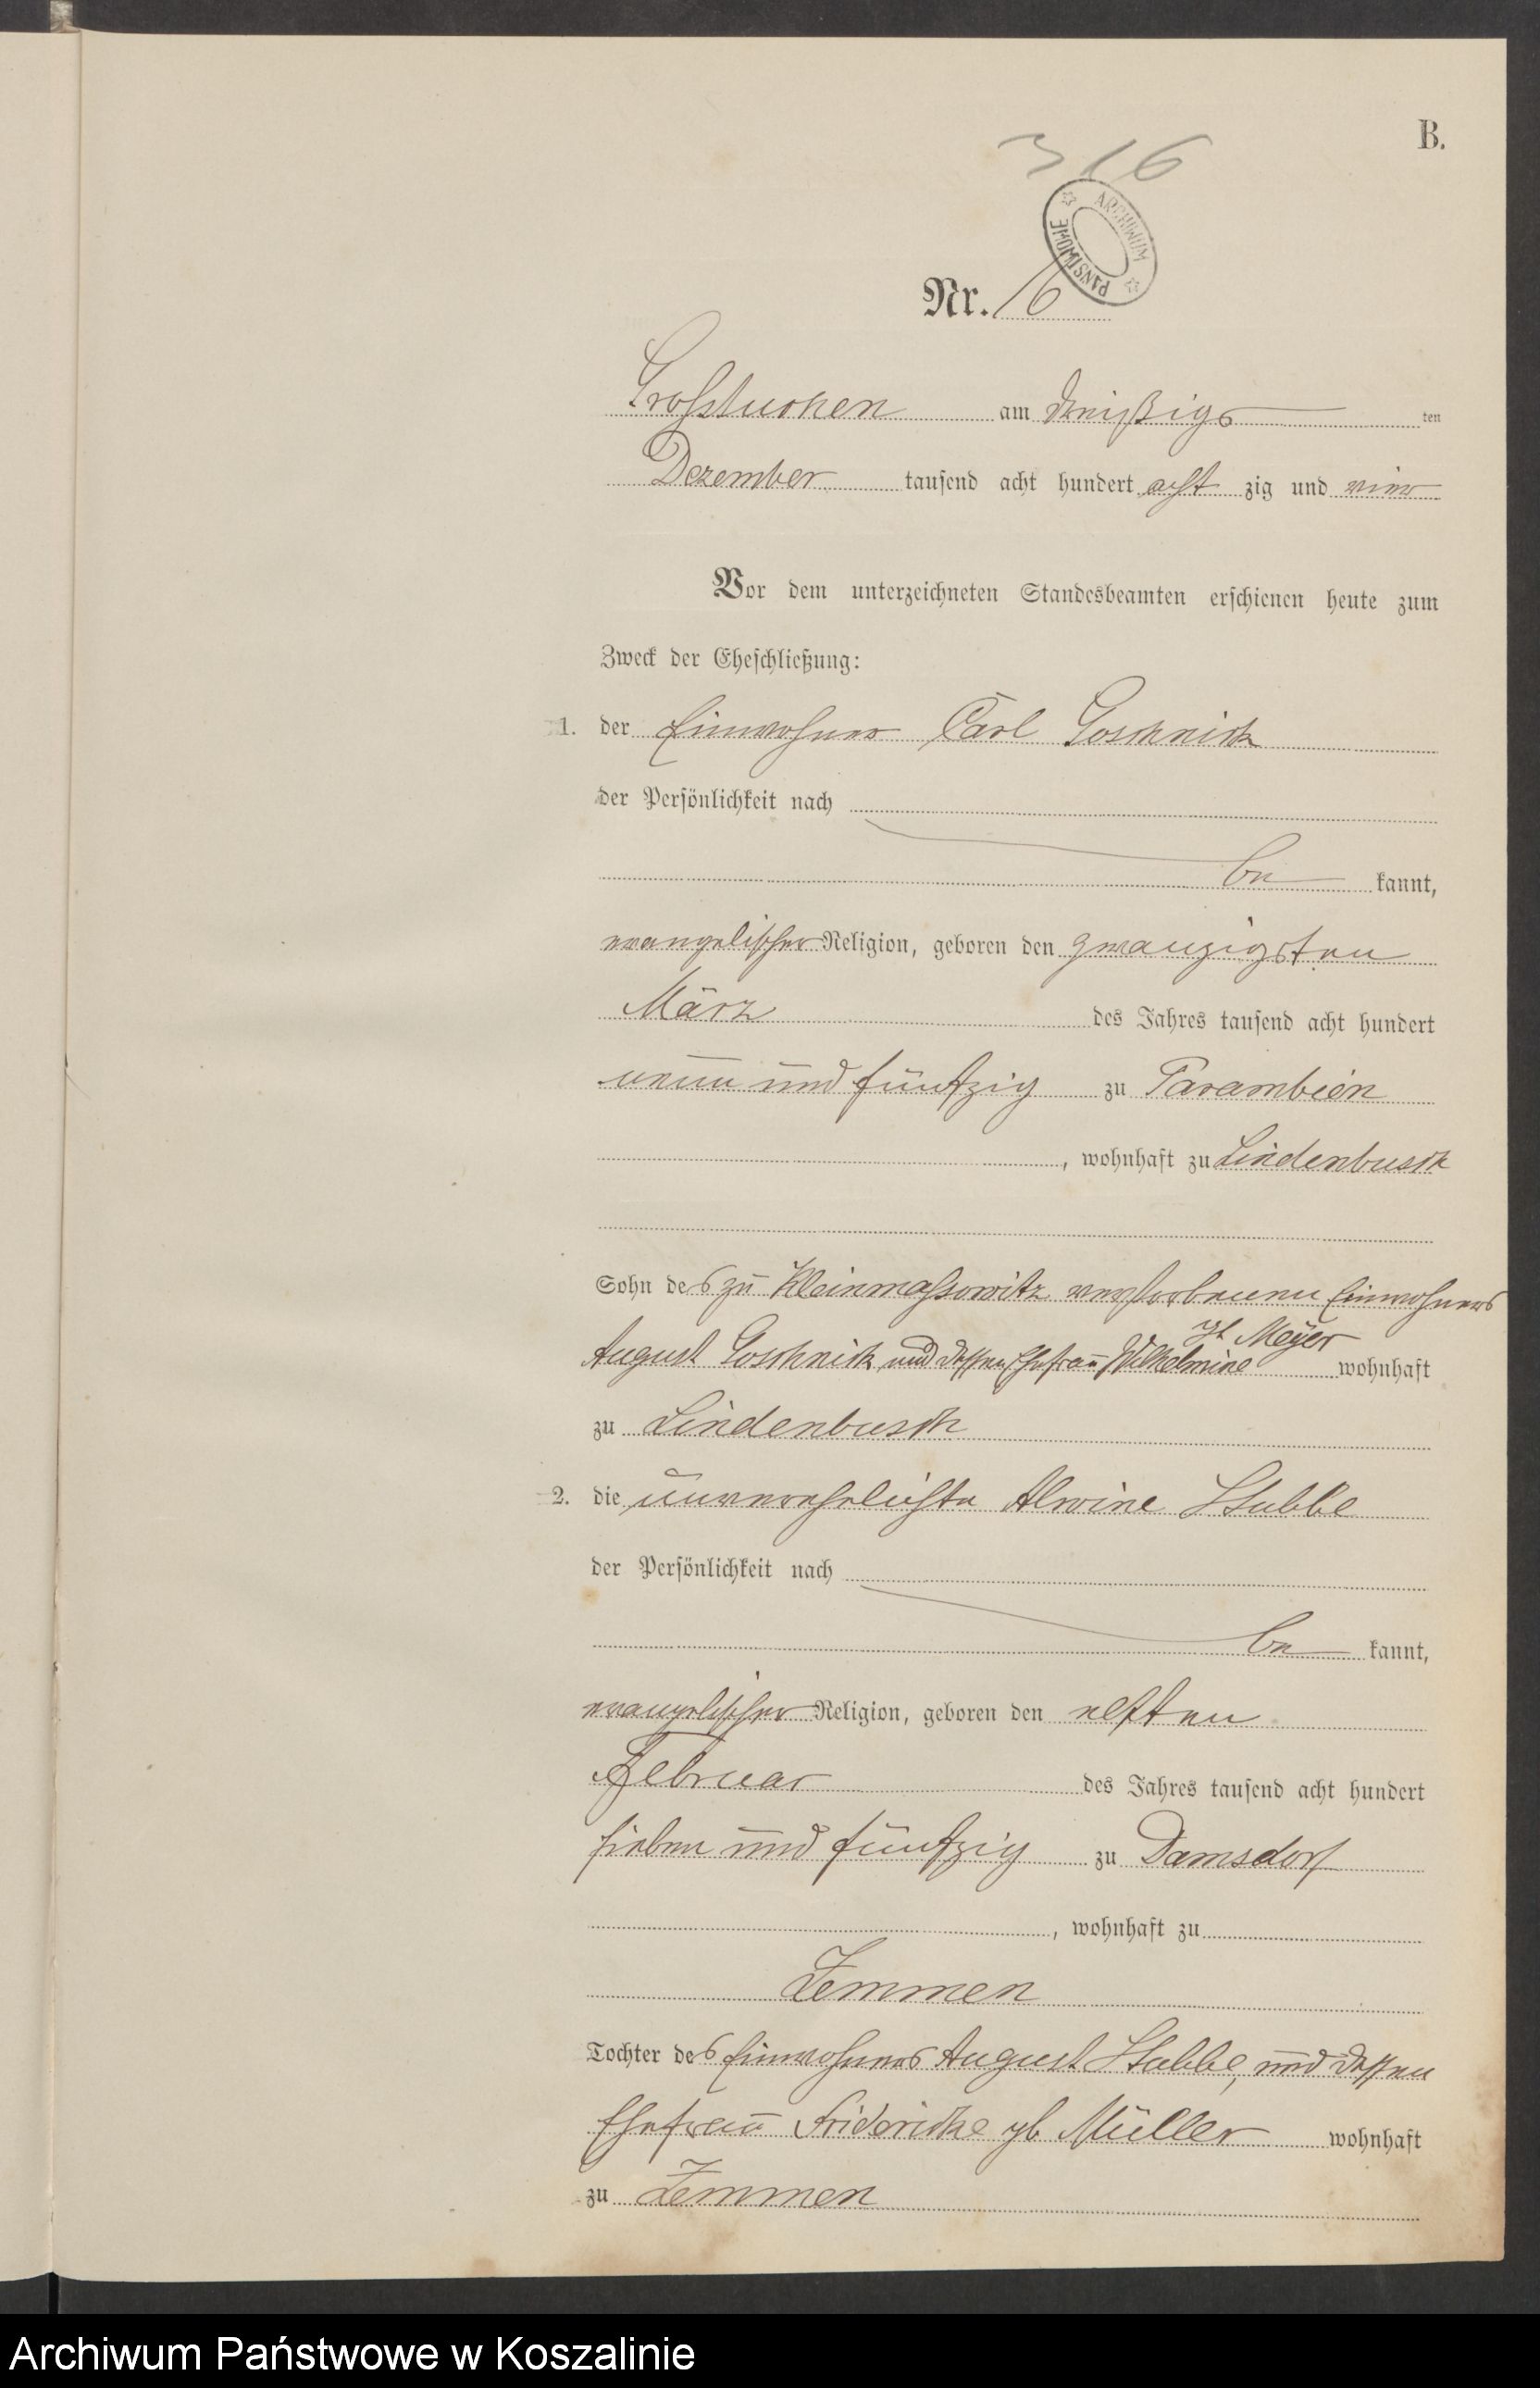 B.
316
ARCHIWUM PAŃSTWOWE
Nr. 16
Großtuchen am dreißigs ten
Dezember tausend acht hundert acht zig und vier
Vor dem unterzeichneten Standesbeamten erschienen heute zum
Zweck der Eheschließung:
1. der Einwohner Carl Goschnick
der Persönlichkeit nach
be kannt,
evangelischer Religion, geboren den zwanzigsten
März des Jahres tausend acht hundert
neun und fünfzig zu Tarambien
, wohnhaft zu Lindenbusch
Sohn des zu Kleinmassowitz verstorbenen Einwohners
August Goschnick und dessen Ehefrau Wilhelmine gb Meyer wohnhaft
zu Lindenbusch
2. die unverehelichte Alwine Stubbe
der Persönlichkeit nach
be kannt,
evangelischer Religion, geboren den elften
Februar des Jahres tausend acht hundert
sieben und fünfzig zu Damsdorf
, wohnhaft zu
Zemmen
Tochter des Einwohners August Stubbe, und dessen
Ehefrau Fridericke gb Müller wohnhaft
zu Zemmen
Archiwum Państwowe w Koszalinie